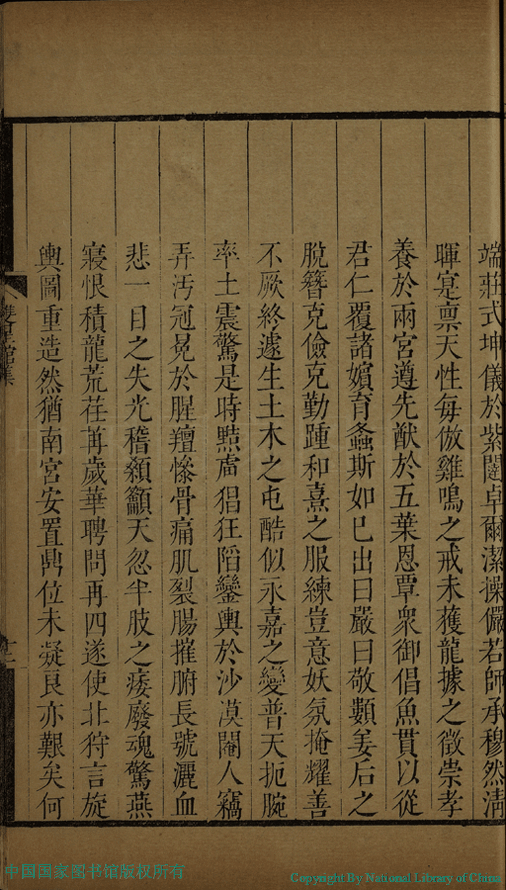 端莊式坤儀於紫闥卓爾潔操儼若師承穆然淸
暉寔禀天性每倣雞鳴之戒未獲龍據之徵崇孝
養於兩宮遵先猷於五葉恩覃衆御倡魚貫以從
君仁覆諸嬪育螽斯如巳出曰嚴曰敬𩔖姜后之
脫簪克儉克勤踵和熹之服練豈意妖氛掩耀善
不厥終遽生土木之屯酷似永嘉之變普天扼腕
率土震驚是時黠虜猖狂陷鑾輿於沙漠閹人竊
弄汚冠冕於腥羶慘骨痛肌裂腸摧腑長號灑血
悲一目之失光稽顙籲天忽半肢之痿廢魂驚燕
寢恨積龍荒荏苒歲華聘問再四遂使北狩言旋
輿圖重造然猶南宮安置鼎位未凝良亦艱矣何
中国国家图书馆版权所有
Copyright By National Library of China